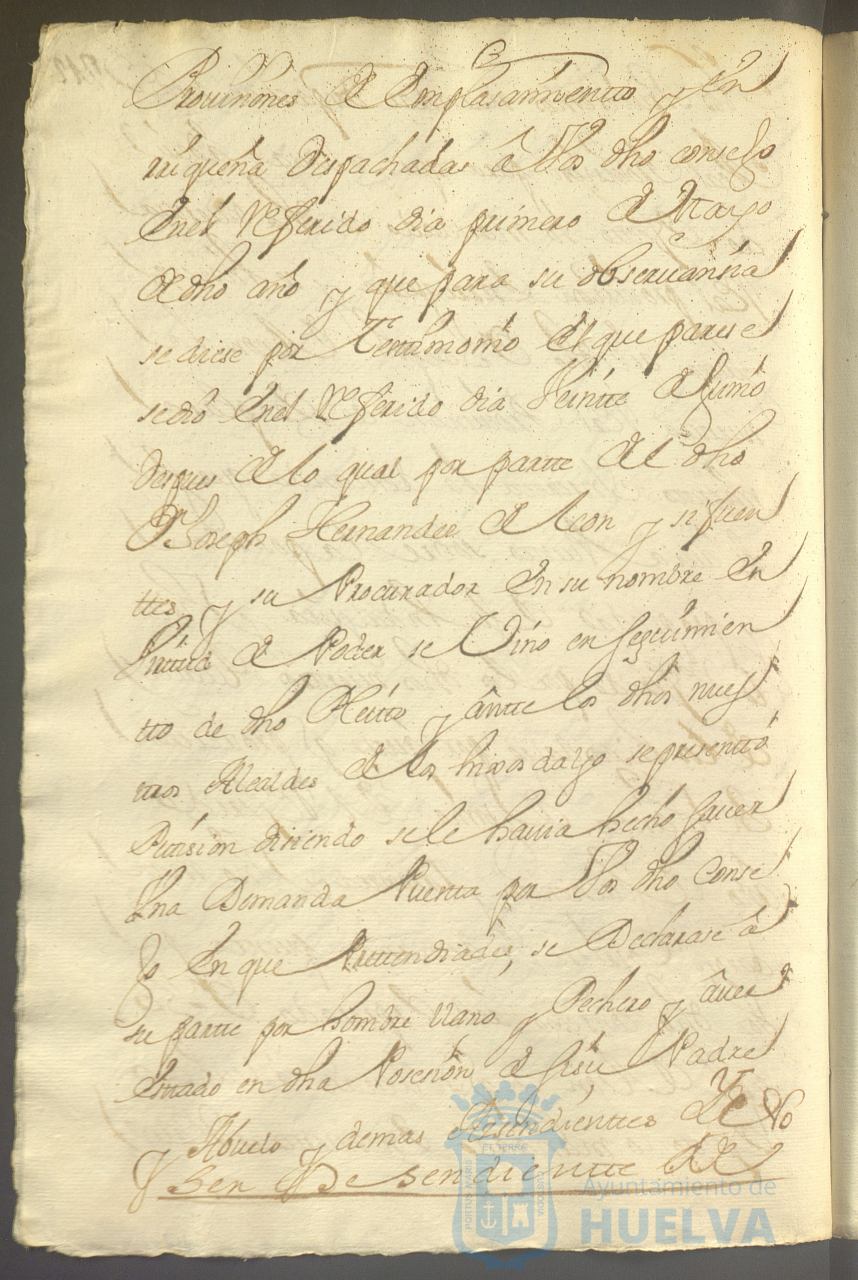 Prouisiones de emplasamientto y en
riqueña despachadas â Vos dho consejo
en el referido dia primero de Mayo
de dho año y que para su obseruansia
se diese por Testtimonio el que parese
se dio en el referido dia Veintte de Junio
despues de lo qual por partte de el dho
Dn Joseph Hernandez de Leon y sifuen
ttes y su Procurador en su nombre en
Virttud de Poder se Vino en seguimien
tto de dho Pleitto y ântte los dhos nues
ttros Alcaldes de los hijos dalgo se presenttó
Petision disiendo se le hauia hecho sauer
Una Demanda Puesta por Vos dho Conse
jo en que Prettendiades, se Declarase â
su partte por hombre llano y Pechero y âuer
esttado en dha Posesion él y su Padre
y Abuelo y demas Asendienttes Y No
ser Desendientte de
Ayuntamiento de
HUELVA